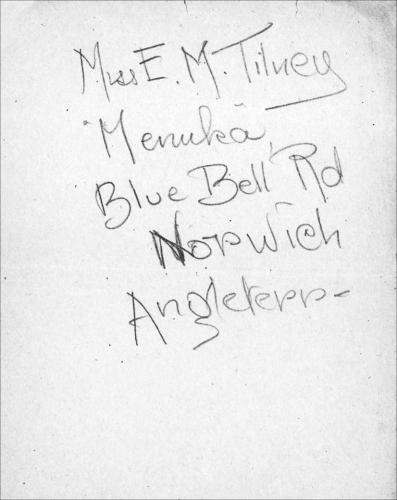 Miss E. M. Tilney
"Menukā,
Blue Bell Rd
Norwich
Angleterr-